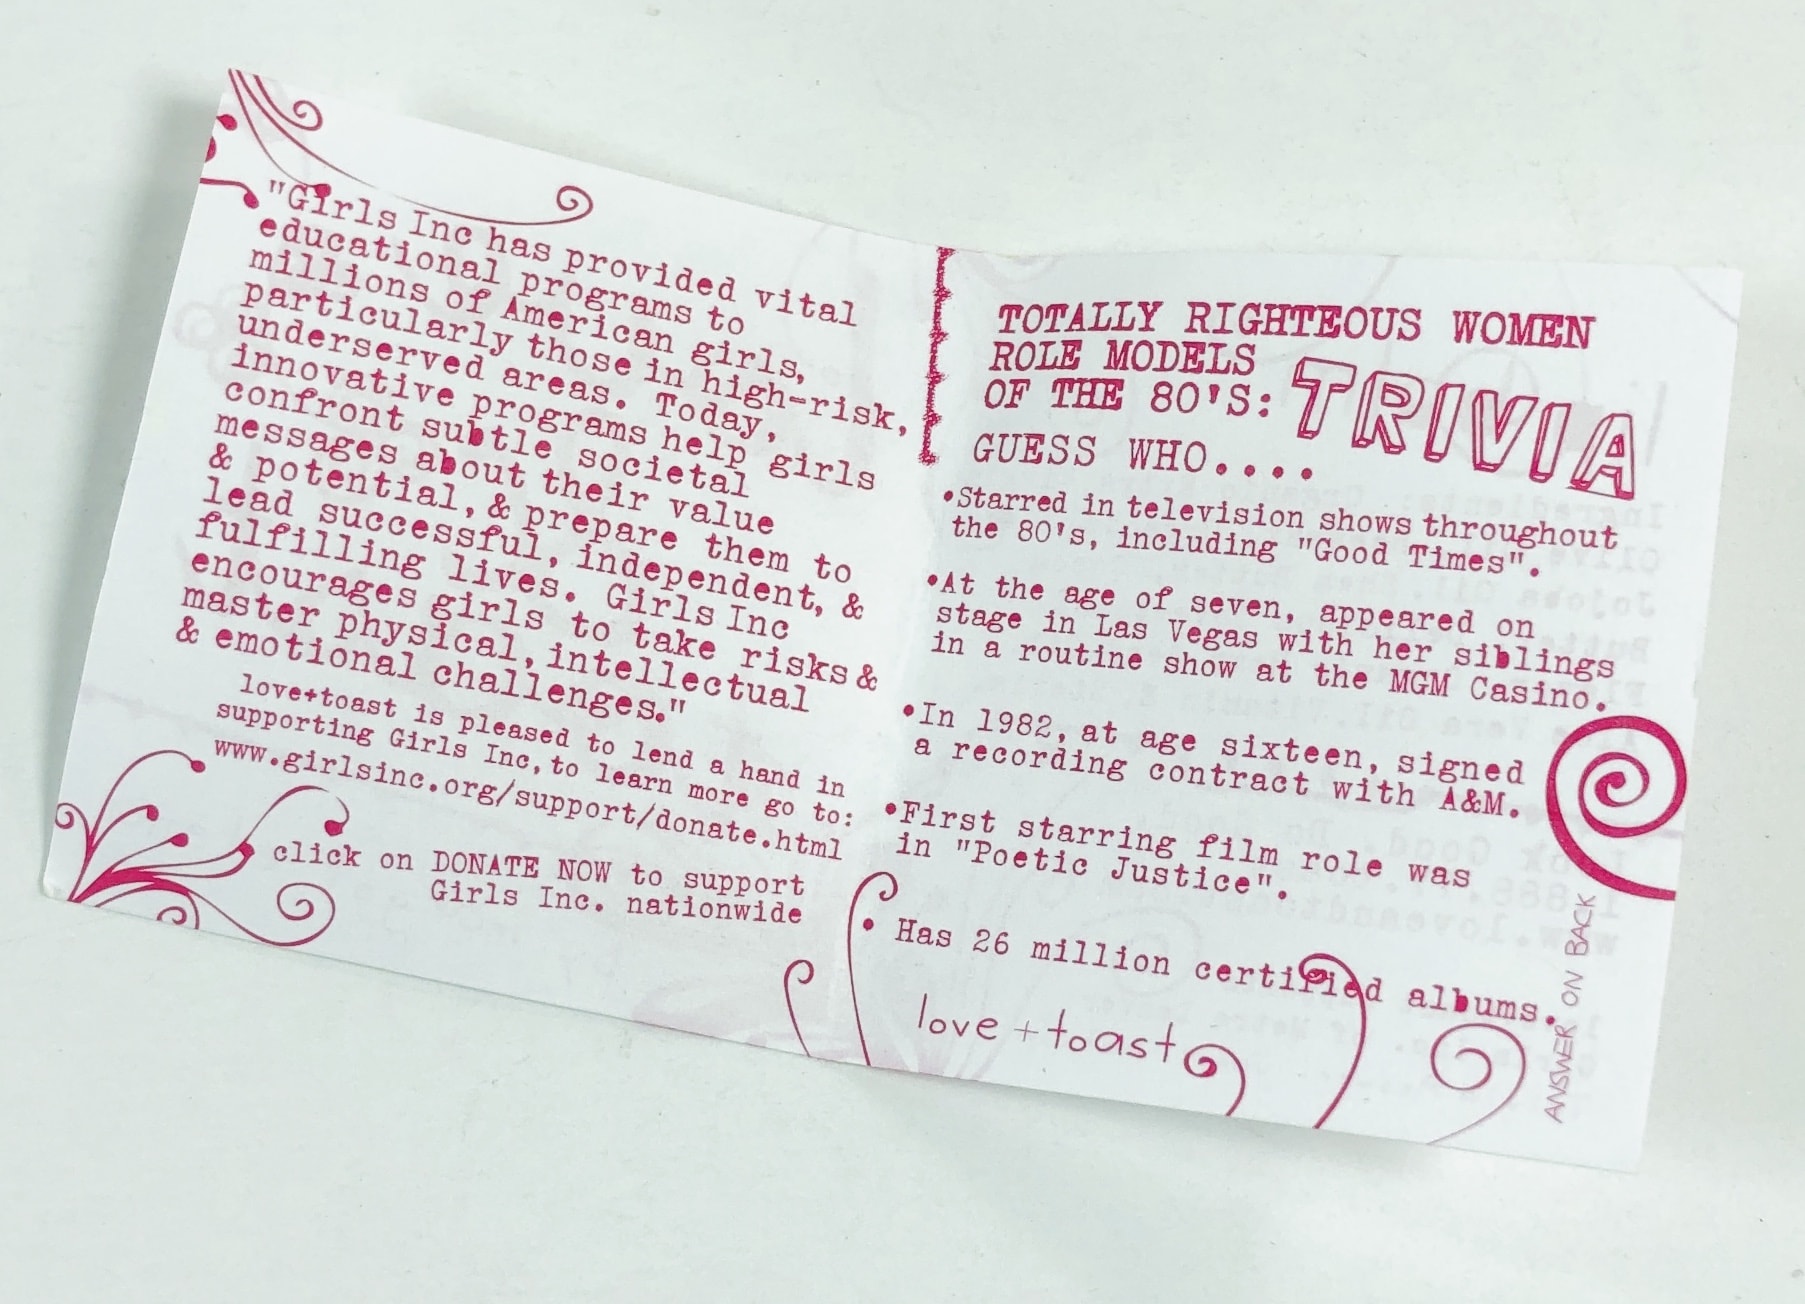 "Girls Inc has provided vital
educational programs to
millions of American girls,
particularly those in high-risk,
underserved areas. Today,
innovative programs help girls
confront subtle societal
messages about their value
& potential, & prepare them to
lead successful, independent, &
fulfilling lives. Girls Inc
encourages girls to take risks &
master physical, intellectual
& emotional challenges."
love+toast is pleased to lend a hand in
supporting Girls Inc, to learn more go to:
www.girlsinc.org/support/donate.html
click on DONATE NOW to support
Girls Inc. nationwide
TOTALLY RIGHTEOUS WOMEN
ROLE MODELS
OF THE 80'S: TRIVIA
GUESS WHO....
•Starred in television shows throughout
the 80's, including "Good Times".
•At the age of seven, appeared on
stage in Las Vegas with her siblings
in a routine show at the MGM Casino.
•In 1982, at age sixteen, signed
a recording contract with A&M.
•First starring film role was
in "Poetic Justice".
• Has 26 million certified albums.
love + toast
ANSWER ON BACK